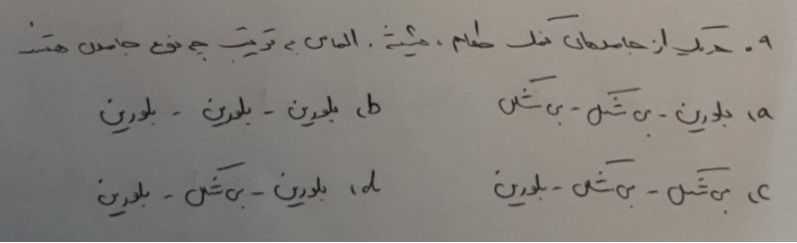 ۹. هریک از جامدهای نمک طعام، شیشه، الماس به ترتیب چه نوع جامدی هستند
a) بلورین - بی شکل - بی شکل b) بلورین - بلورین - بلورین
c) بی شکل - بی شکل - بلورین d) بلورین - بی شکل - بلورین